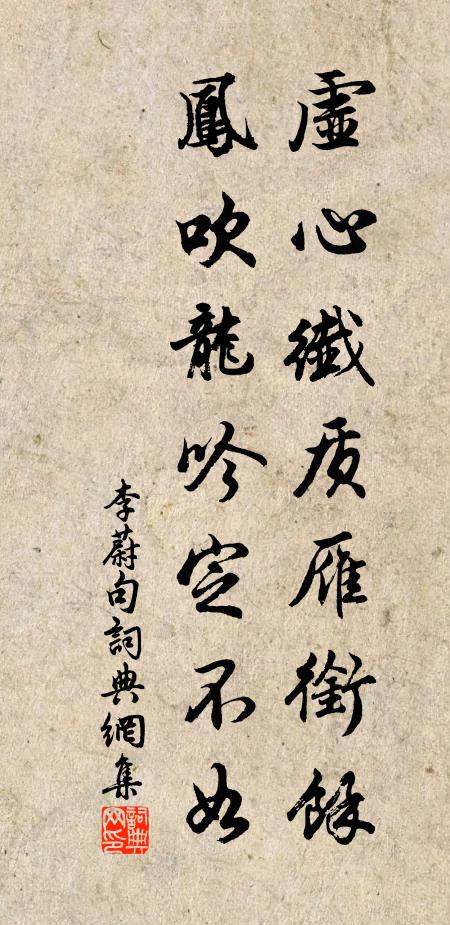 虛心纖质雁銜餘
鳳吹龍吟定不如
李蔚句詞典網集
詞典
网印